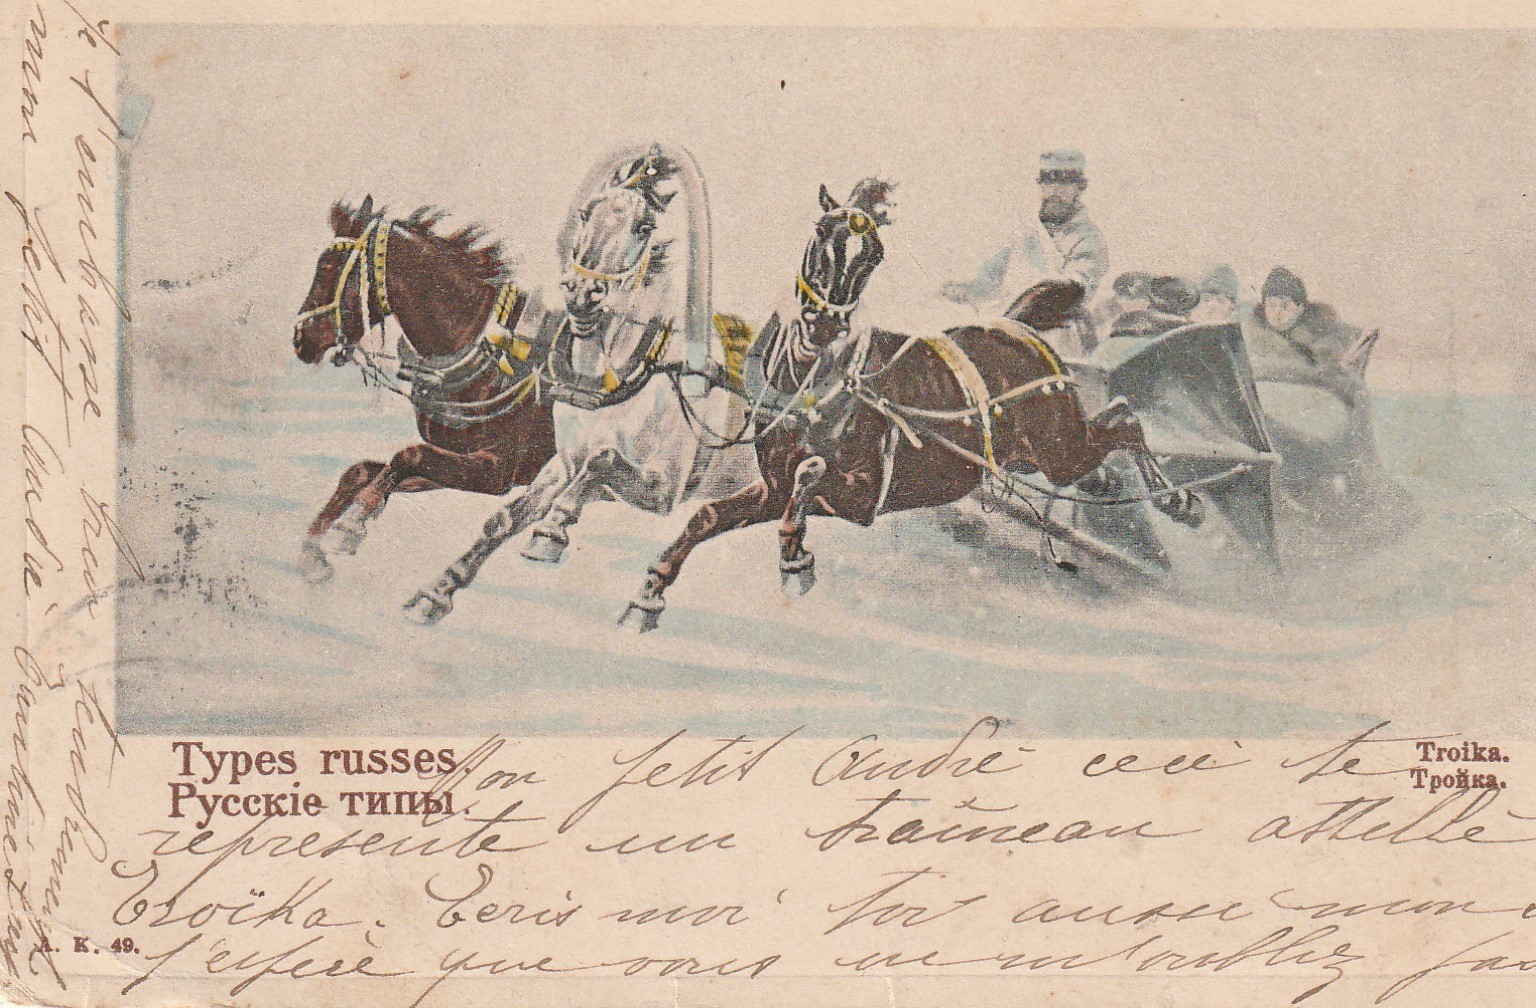 Types russes.
Русскіе типы.
Troika.
Тройка.
Mon petit André ceci te
represente un traîneau attellé
Troïka. Ecris moi toi aussi mon
J'espère que vous ne m'oubliez pas
A. K. 49.
Je t'embrasse bien tendrement
mon petit André